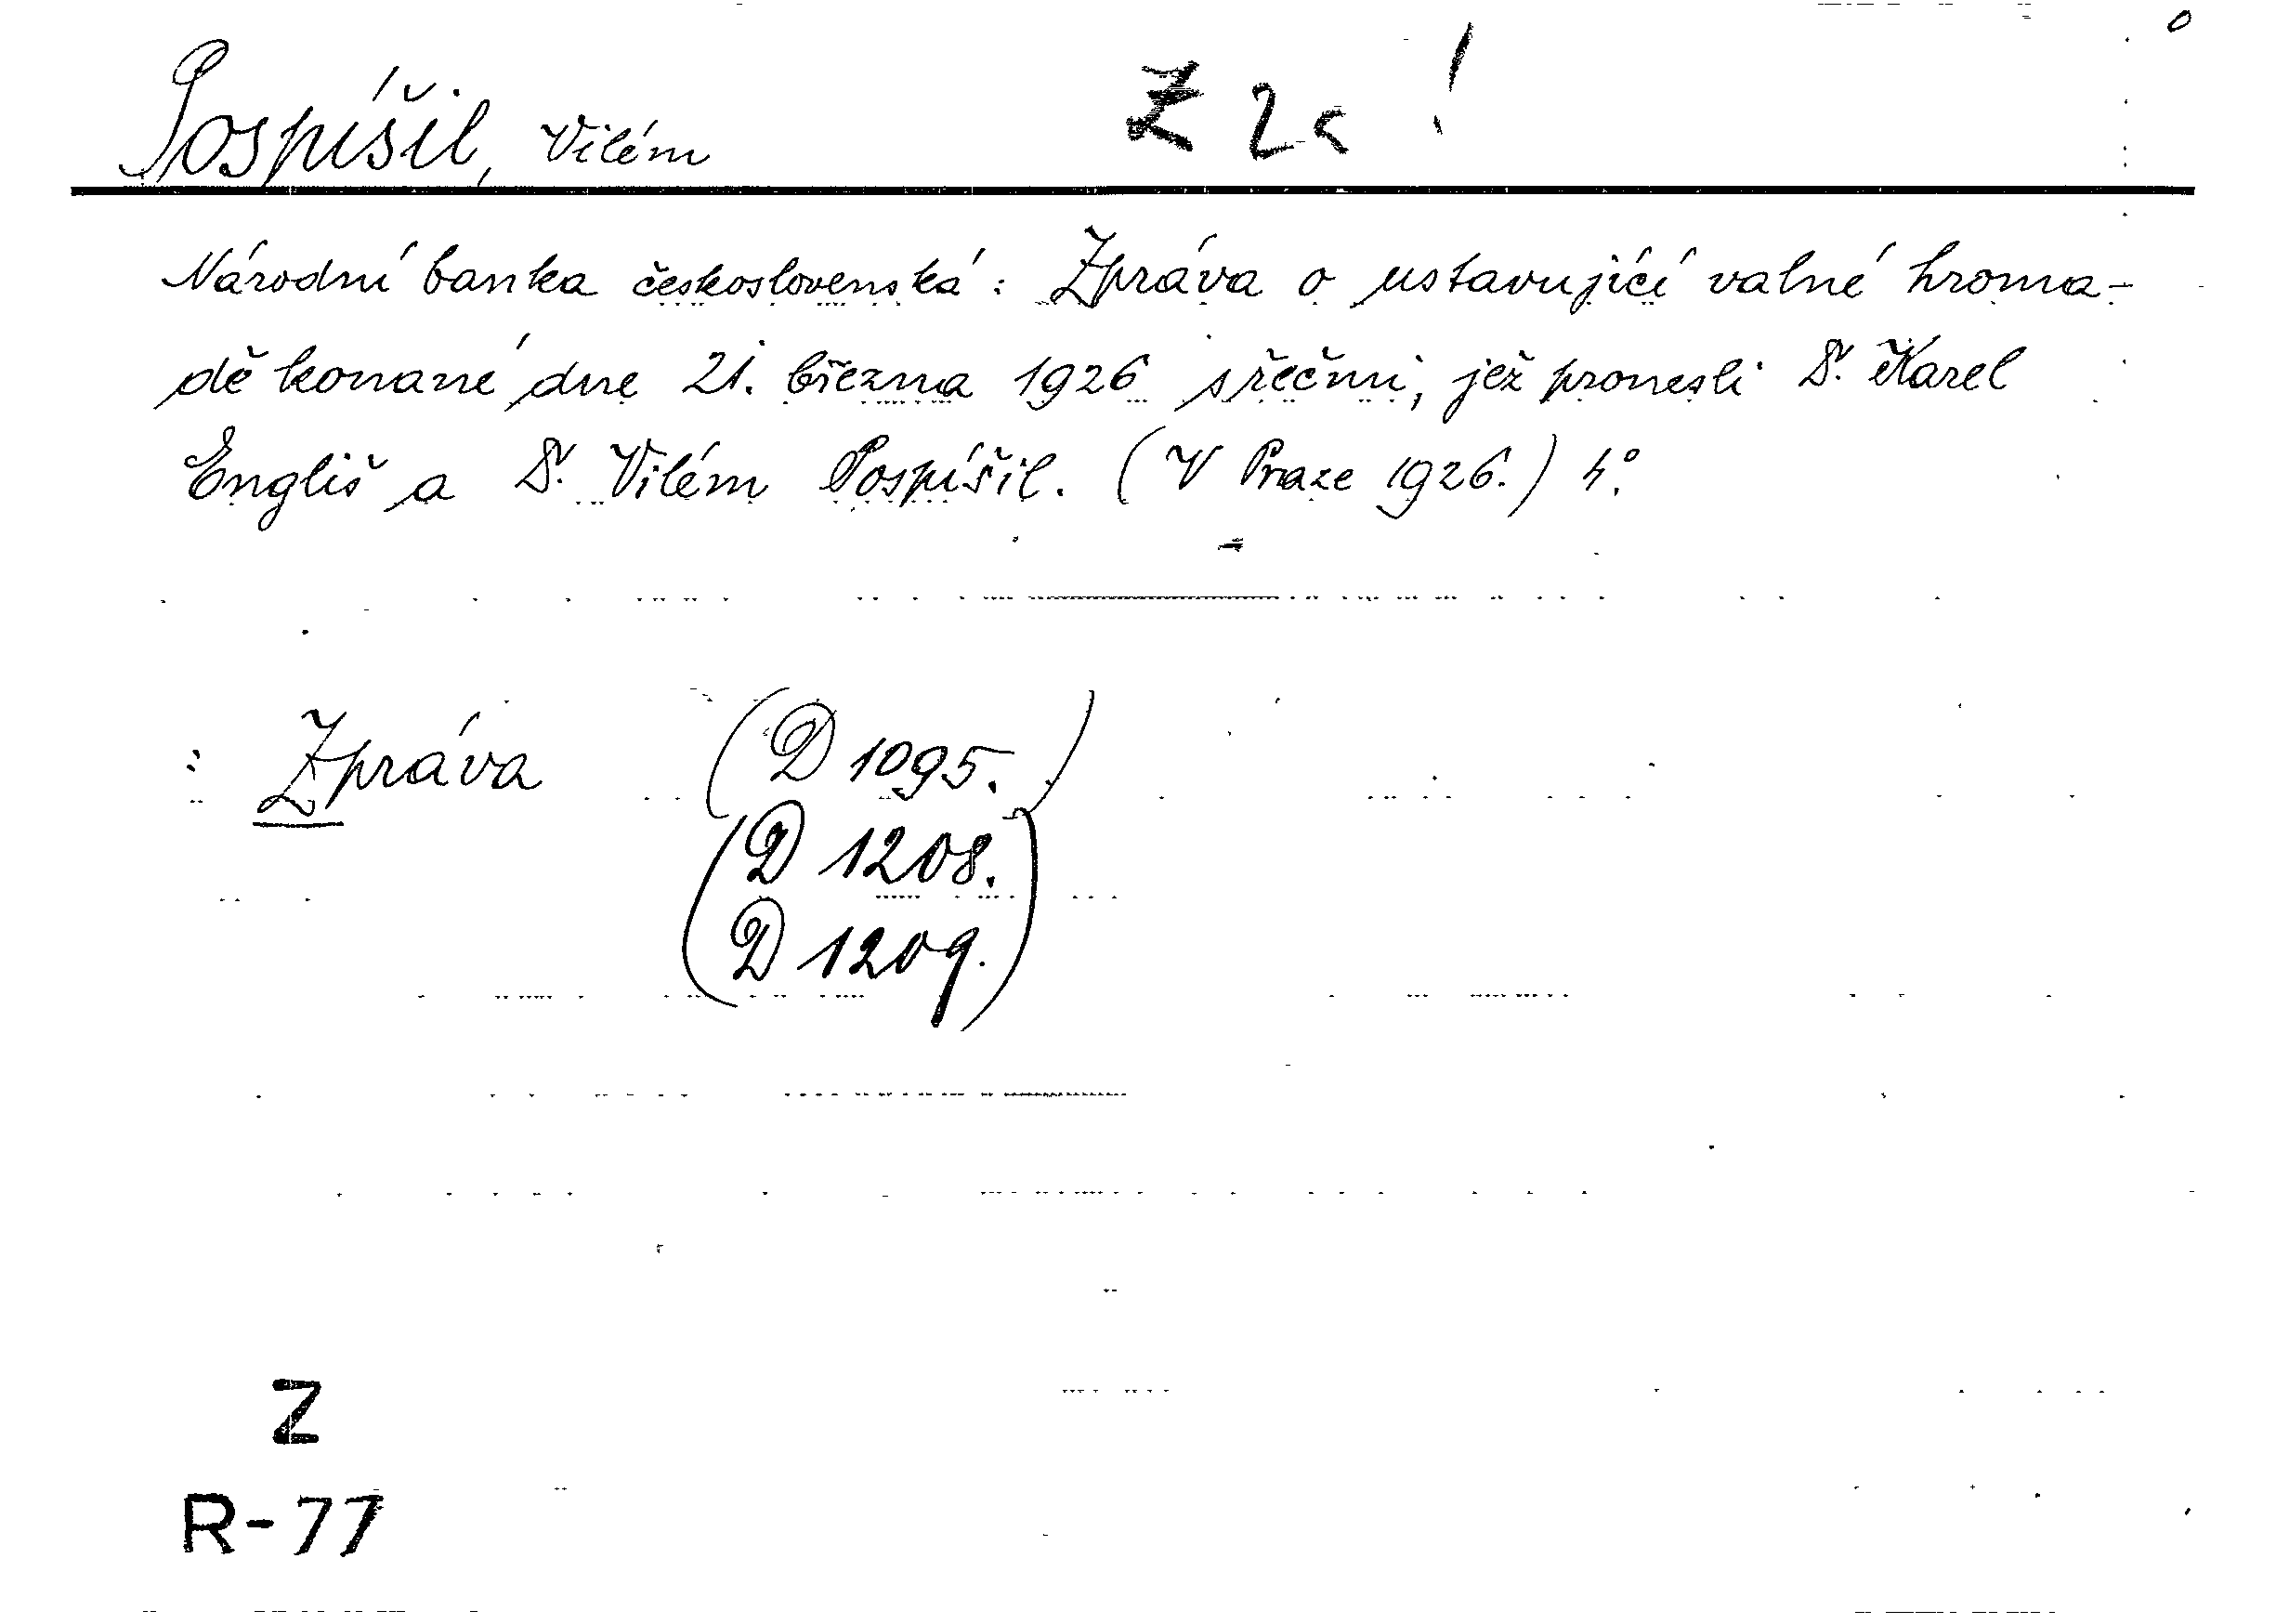 Pospíšil, Vilém Z 2c !
Národní banka československá: Zpráva o ustavující valné hroma-
dě konané dne 21. března 1926 s řečmi, jež pronesli Dr. Karel
Engliš a Dr. Vilém Pospíšil. (V Praze 1926.) 4°.
: Zpráva (D 1095.)
(D 1208.
D 1209.)
Z
R-77